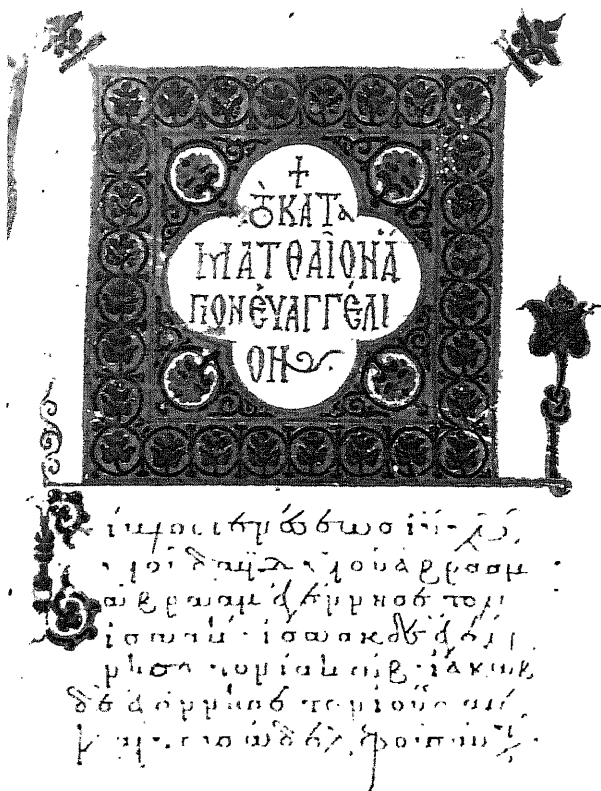 +
τὸ ΚΑΤΑ
ΜΑΤΘΑῖΟΝ Ἅ
ΓΙΟΝ ἐΥΑΓΓέΛΙ
ΟΝ
Βίβλος γενέσεως ἰῦ χῦ
υἱοῦ δαδ υἱοῦ ἀβραάμ
ἀβραὰμ ἐγέννησε τὸν
ἰσαάκ· ἰσαὰκ δὲ ἐγέν
νησε τὸν ἰακώβ· ἰακὼβ
δὲ ἐγέννησε τὸν ἰούδαν